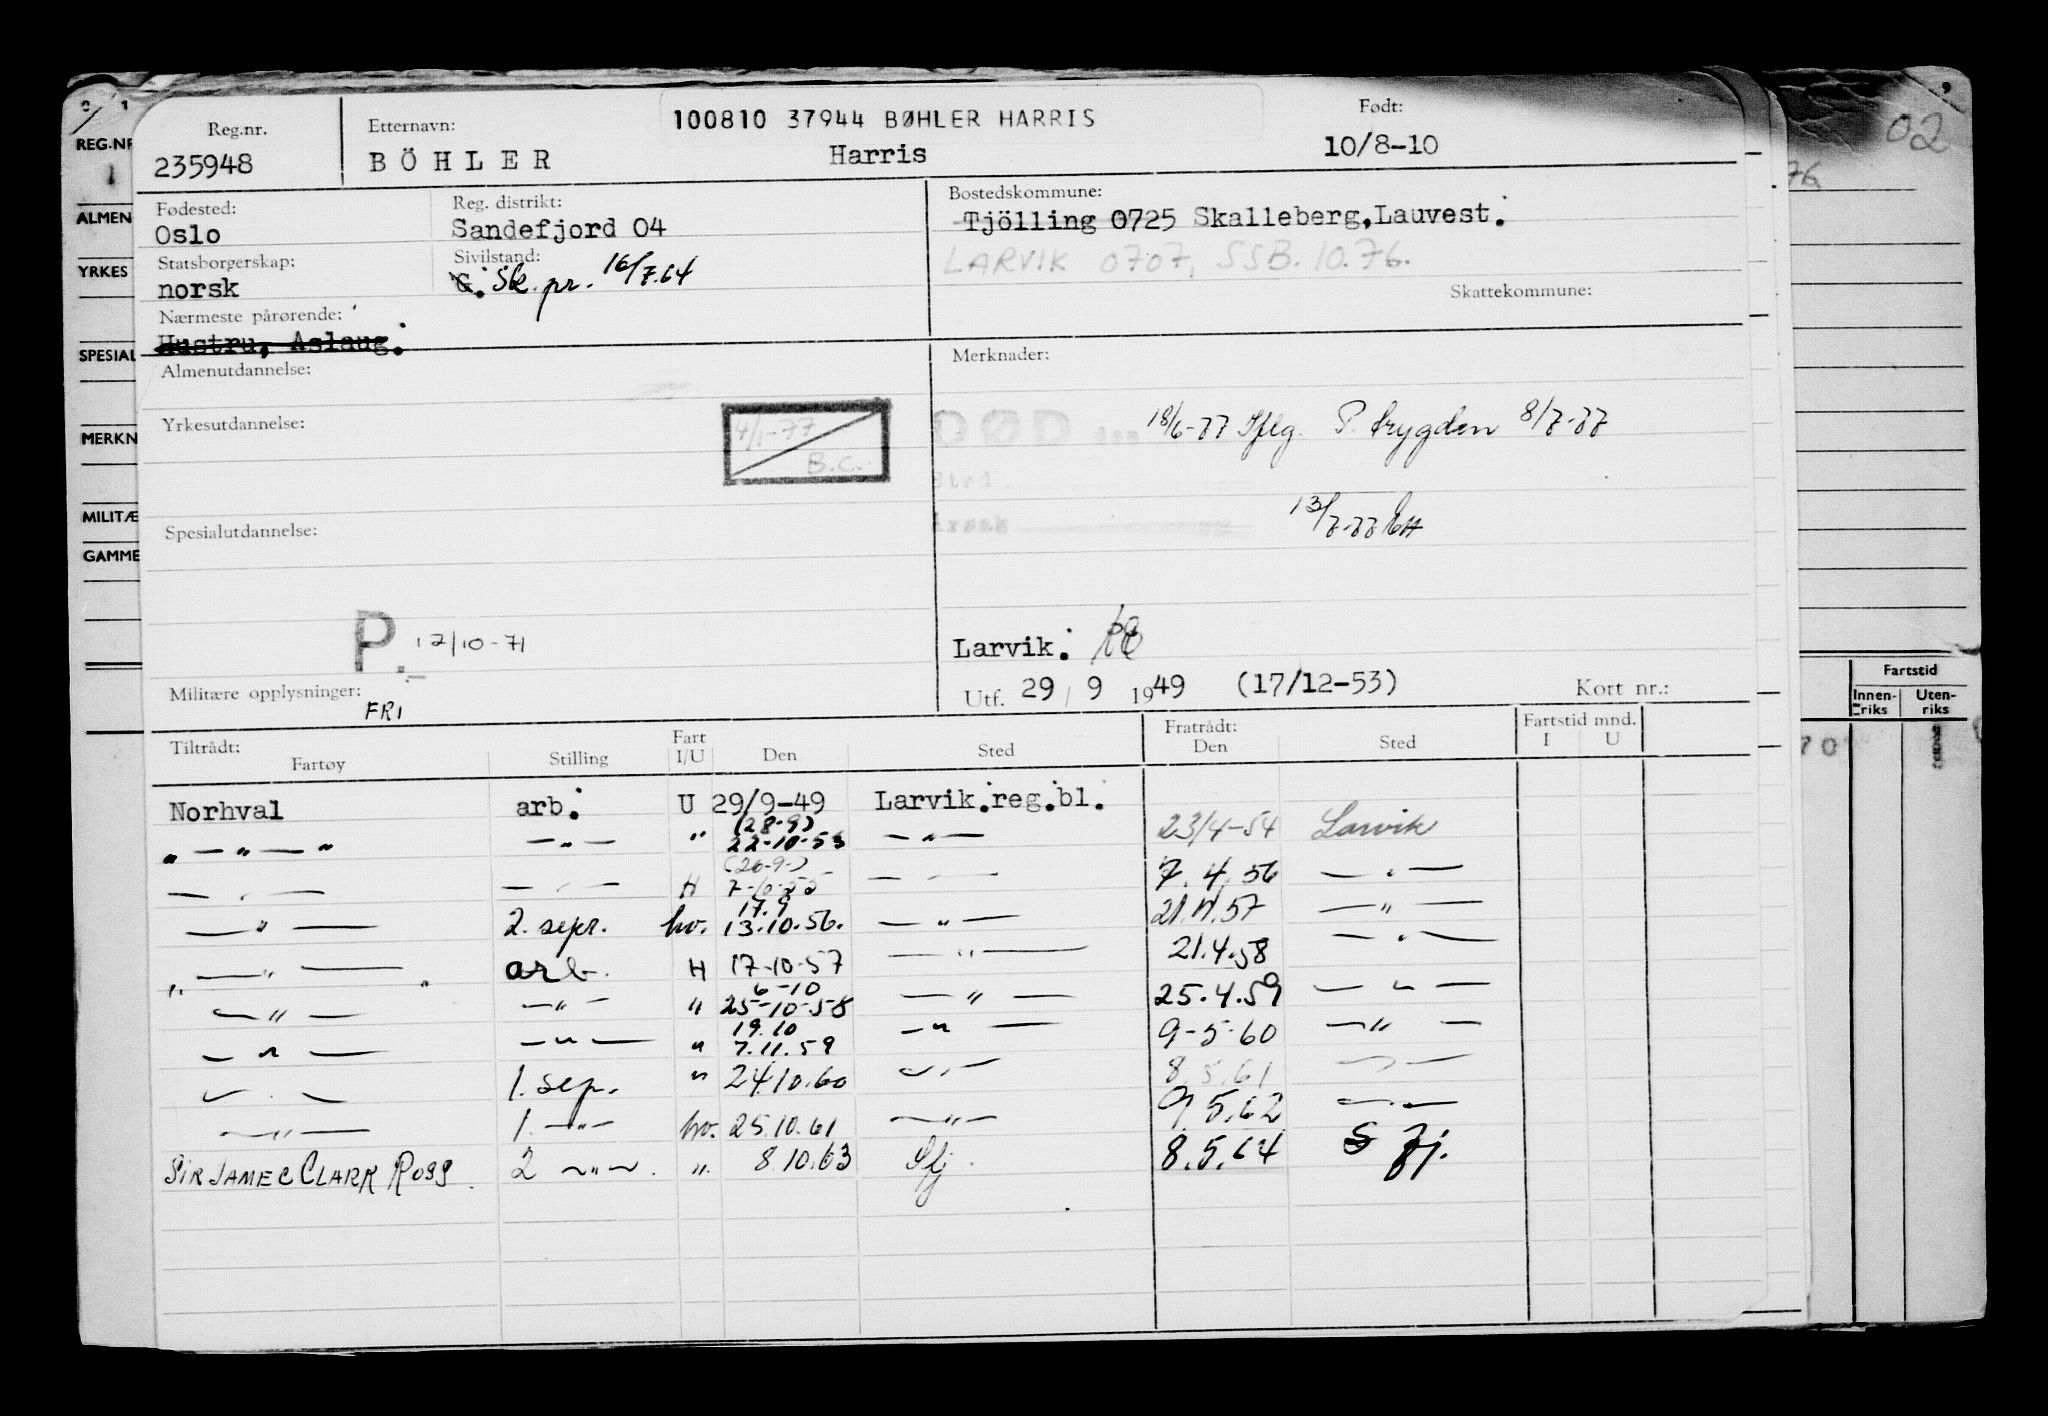 100810 37944 BØHLER HARRIS
Reg.nr. Etternavn: Født:
235948 BÖHLER Harris 10/8-10
Fødested: Reg. distrikt: Bostedskommune:
Oslo Sandefjord 04 Tjölling 0725 Skalleberg, Lauvest.
Statsborgerskap: Sivilstand: LARVIK 0707, SSB. 10.76.
norsk G. Sk. pr. 16/7.64
Skattekommune:
Nærmeste pårørende:
Hustru, Aslaug.
Almenutdannelse: Merknader:
Yrkesutdannelse:
4/1-77
B.C.
DØD 18/6-77 Iflg. P. trygden 8/7-77
Sted
Årsak 13/7-77
Spesialutdannelse:
P. 12/10-71
Larvik:
Militære opplysninger: Utf. 29/9 1949 (17/12-53) Kort nr.:
FRI
Tiltrådt: Fart Fratrådt: Fartstid mnd.
Fartøy Stilling I/U Den Sted Den Sted I U
Norhval arb. U 29/9-49 Larvik.reg.bl.
" — " — " — " — " (28.9) 22-10-53 — " — 23/4-54 Larvik
— " — — " — H (26-9-) 7-10-55 — " — 7.4.56 — " —
— " — 2. sepr. hv. 17.9 13.10.56. — " — 21.4.57 — " —
" — " — " arb. H 17-10-57 — " — 21.4.58 — " —
— " — — " — " 6-10 25-10-58 — " — 25.4.59 — " —
— " — — " — " 19.10 7.11.59 — " — 9-5-60 — " —
— " — 1. sep. " 24.10.60 — " — 8.5.61 — " —
— " — 1. — " — hv. 25.10.61 — " — 9.5.62 — " —
SIR JAMES CLARK ROSS. 2 — " — . " 8.10.63 Sfj. 8.5.64 S fj.
REG.NR
ALMEN
YRKES
SPESIAL
MERKN
MILITÆ
GAMME
02
76.
Fartstid
Innen-riks Uten-riks
70